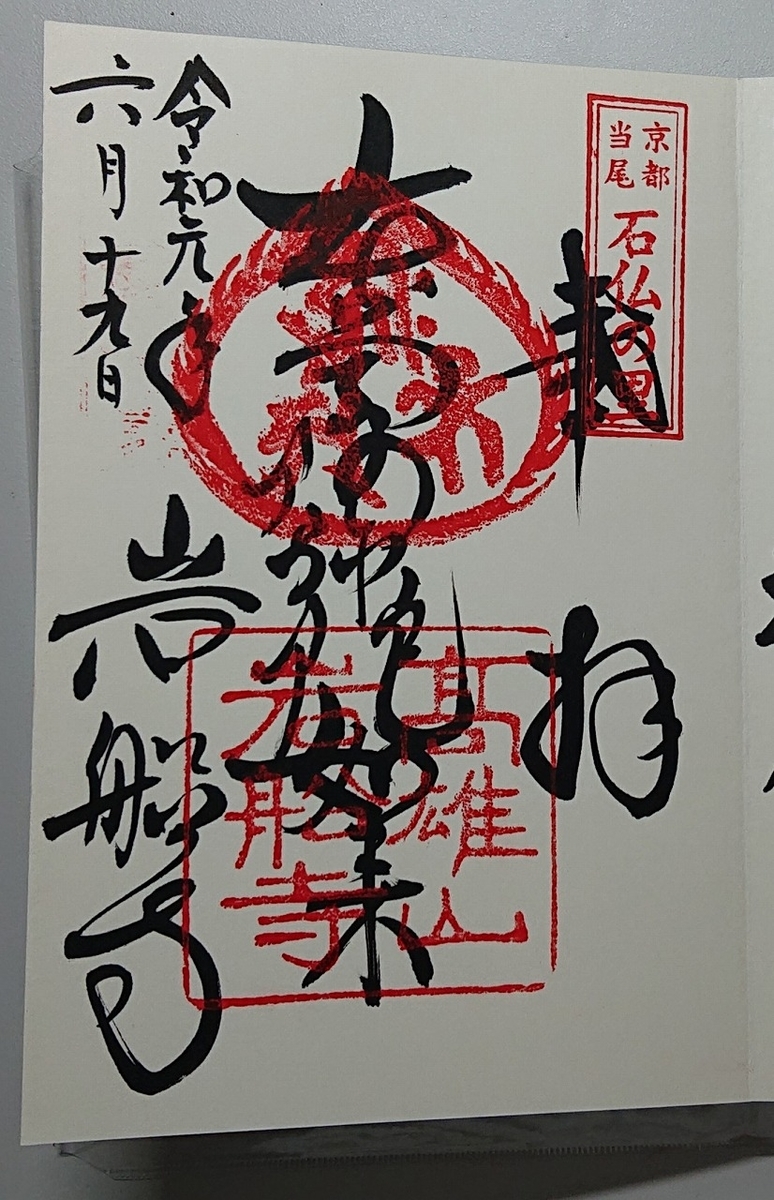 京都
当尾
石仏の里
奉拝
本尊阿弥陀如来
高雄山
岩船寺
令和元年
六月十九日
岩船寺